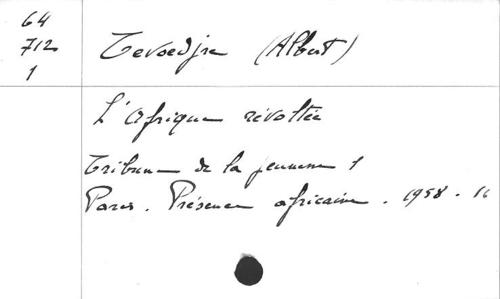 64
712
1
Tevoedjre (Albert)
L'Afrique révoltée
Tribune de la jeunesse 1
Paris. Présence africaine. 1958. 16